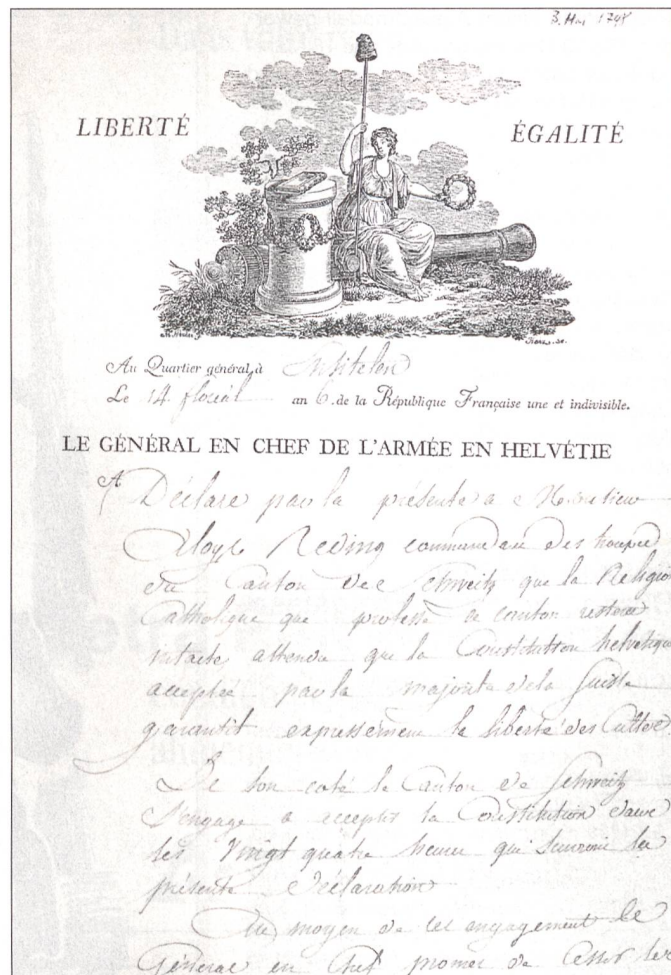 3. Mai 1798
LIBERTÉ ÉGALITÉ
Au Quartier général, à
Le 14 floréal an 6. de la République Française une et indivisible.
LE GÉNÉRAL EN CHEF DE L'ARMÉE EN HELVÉTIE
Déclare par la présente a Monsieur
Aloys Reding commandant des troupes
du Canton de Schweitz que la Religion
Catholique que professe ce canton restera
intacte attendu que la Constitution helvetique
acceptée par la majorité de la Suisse
garantit expressément la liberté des Cultes
De son coté le Canton de Schweitz
S'engage a accepter la Constitution dans
les Vingt quatre heures qui Suivront la
présente Déclaration
Au moyen de ces engagement Le
Général en Chef promet de Cesser les